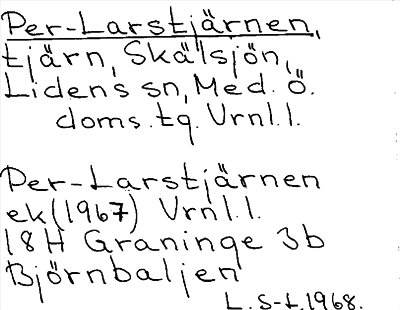 Per-Larstjärnen,
tjärn, Skälsjön,
Lidens sn, Med. Ö.
doms. tg. Vrnl.l.
Per-Larstjärnen
ek (1967) Vrnl.l.
18H Graninge 3b
Björnbaljen
L. S-L. 1968.